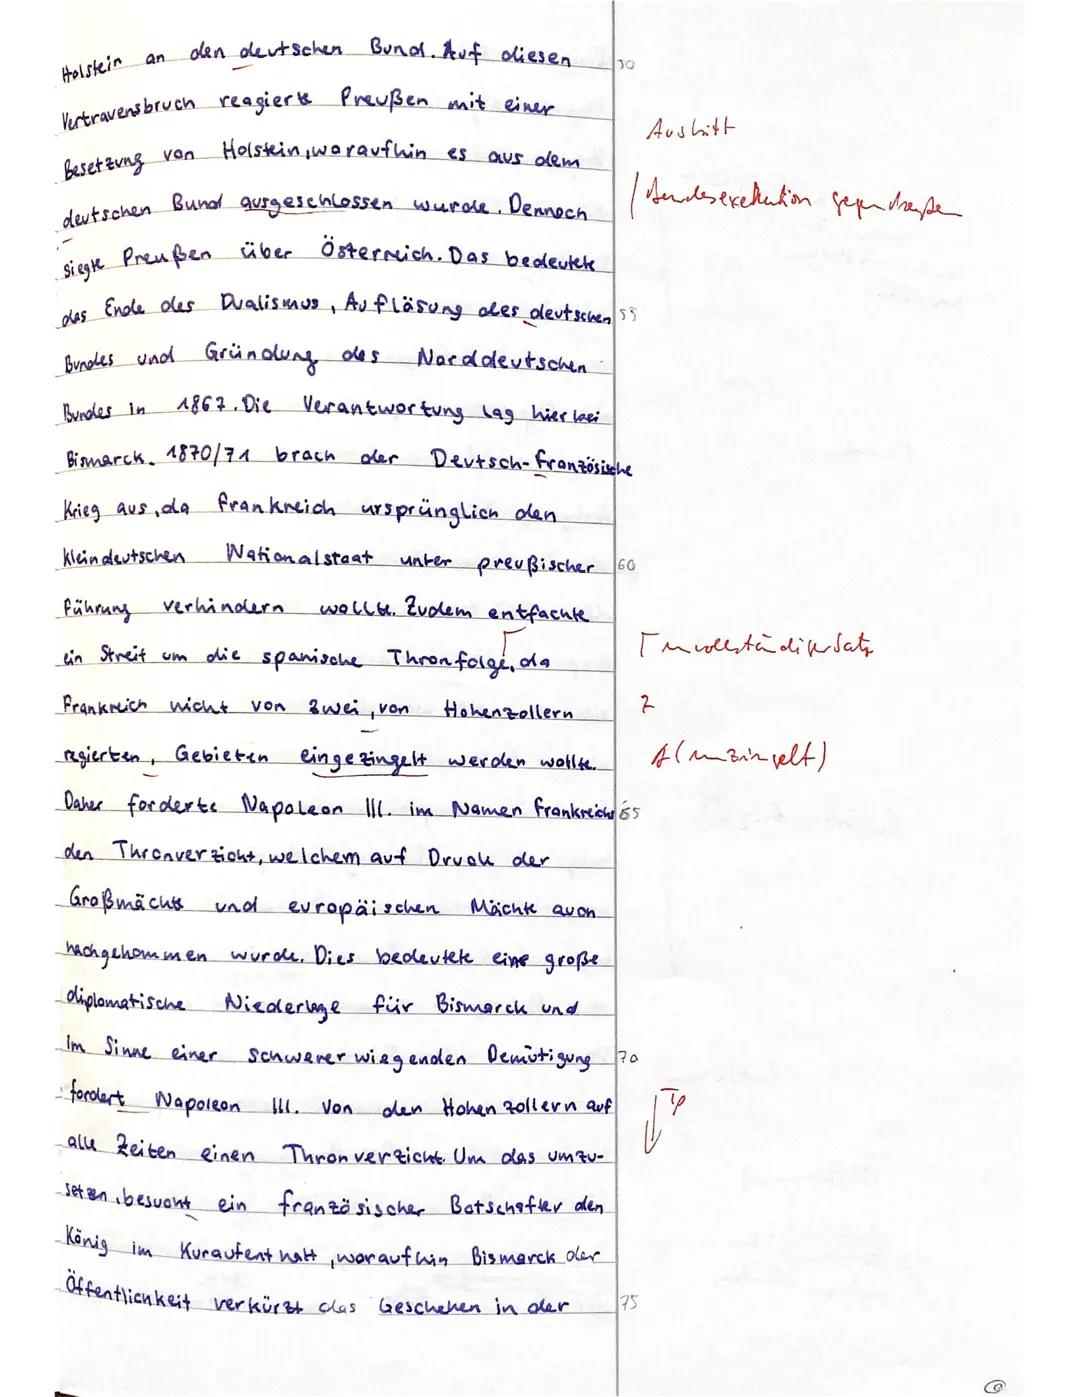 Holstein an den deutschen Bund. Auf diesen 50
Vertrauensbruch reagierte Preußen mit einer
Austritt
Besetzung von Holstein, woraufhin es aus dem
deutschen Bund ausgeschlossen wurde. Dennoch / Bundesexekution gegen Preußen
siegte Preußen über Österreich. Das bedeutete
das Ende des Dualismus, Auflösung des deutschen 55
Bundes und Gründung des Norddeutschen
Bundes in 1867. Die Verantwortung lag hier bei
Bismarck. 1870/71 brach der Deutsch-französische
Krieg aus, da Frankreich ursprünglich den
kleindeutschen Nationalstaat unter preußischer 60
Führung verhindern wollte. Zudem entfachte
ein Streit um die spanische Thronfolge, da Γ unvollständiger Satz
Frankreich nicht von zwei, von Hohenzollern Z
regierten, Gebieten eingezingelt werden wollte. A (umzingelt)
Daher forderte Napoleon III. im Namen Frankreichs 65
den Thronverzicht, welchem auf Druck der
Großmächte und europäischen Mächte auch
nachgekommen wurde. Dies bedeutete eine große
diplomatische Niederlage für Bismarck und
im Sinne einer schwerer wiegenden Demütigung 70
fordert Napoleon III. von den Hohenzollern auf Tp
alle Zeiten einen Thronverzicht. Um das umzu-
setzen, besucht ein französischer Botschafter den
König im Kuraufenthalt, woraufhin Bismarck der
Öffentlichkeit verkürzt das Geschehen in der 75